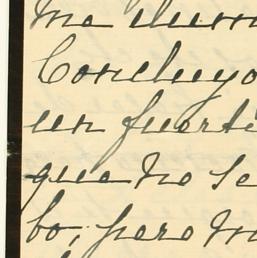 me
Concluyo
un fuerte
que no se
bo, pero